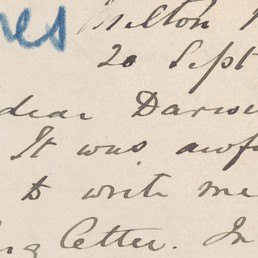 res Milton
20 Sept
dear Darw
It was awf
to write me
letter. In